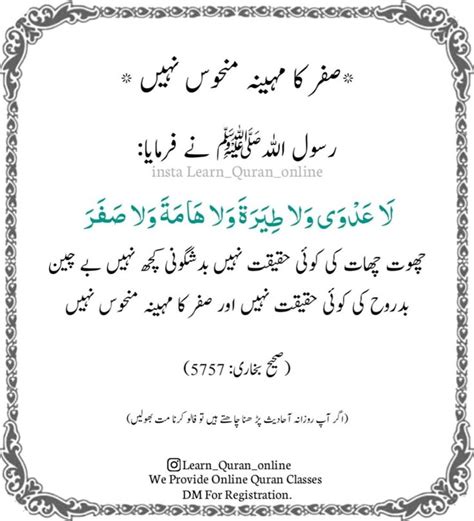 *صفر کا مہینہ منحوس نہیں*
رسول اللہ ﷺ نے فرمایا:
insta Learn_Quran_online
لَا عَدْوَى وَلَا طِيَرَةَ وَلَا هَامَةَ وَلَا صَفَرَ
چھوت چھات کی کوئی حقیقت نہیں بدشگونی کچھ نہیں بے چین
بدروح کی کوئی حقیقت نہیں اور صفر کا مہینہ منحوس نہیں
(صحیح بخاری: 5757)
(اگر آپ روزانہ آحادیث پڑھنا چاھتے ہیں تو فالو کرنا مت بھولیں)
Learn_Quran_online
We Provide Online Quran Classes
DM For Registration.